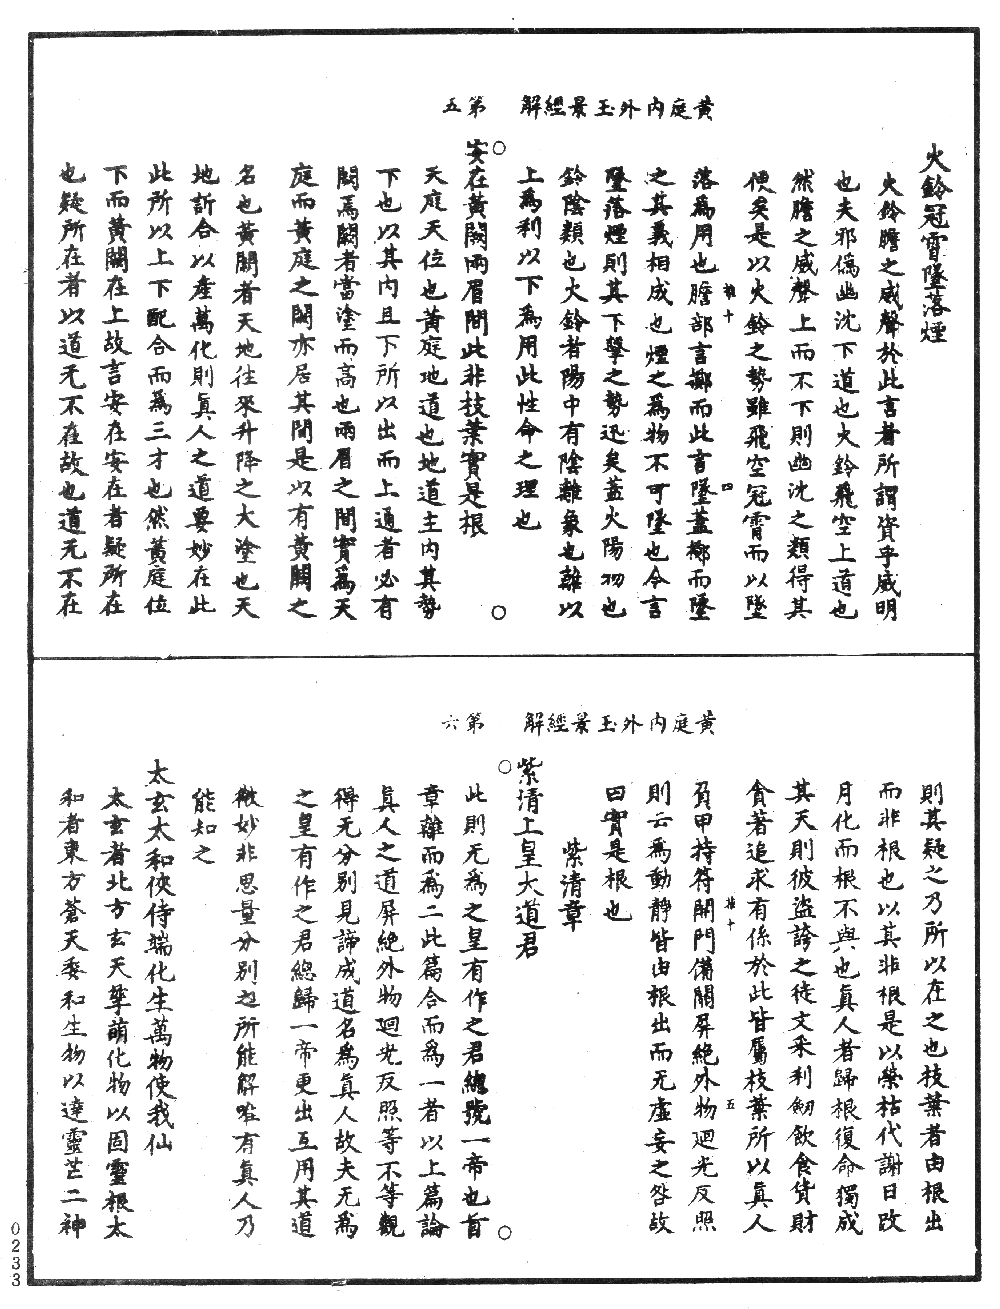 黃庭內外玉景經解　第五
火鈴冠霄墜落煙
火鈴膽之威聲於此言者所謂資乎威明
也夫邪僞幽沈下道也火鈴飛空上道也
然膽之威聲上而不下則幽沈之類得其
便矣是以火鈴之勢雖飛空冠霄而以墜
落爲用也膽部言擲而此言墜蓋擲而墜
推十　四
之其義相成也煙之爲物不可墜也今言
墜落煙則其下擊之勢迅矣蓋火陽物也
鈴陰類也火鈴者陽中有陰離象也離以
上爲利以下爲用此性命之理也
安在黃闕兩眉間此非枝葉實是根
天庭天位也黃庭地道也地道主內其勢
下也以其內且下所以出而上通者必有
闕焉闕者當塗而高也兩眉之間實爲天
庭而黃庭之闕亦居其間是以有黃闕之
名也黃闕者天地往來升降之大塗也天
地訢合以產萬化則眞人之道要妙在此
此所以上下配合而爲三才也然黃庭位
下而黃闕在上故言安在安在者疑所在
也疑所在者以道无不在故也道无不在
黃庭內外玉景經解　第六
則其疑之乃所以在之也枝葉者由根出
而非根也以其非根是以榮枯代謝日改
月化而根不與也眞人者歸根復命獨成
其天則彼盜誇之徒文釆利劒飲食貨財
貪著追求有係於此皆屬枝葉所以眞人
推十　五
負甲持符開門備關屏絶外物廻光反照
則云爲動靜皆由根出而无虛妄之咎故
曰實是根也
紫清章
紫清上皇大道君
此則无爲之皇有作之君總號一帝也盲
章離而爲二此篇合而爲一者以上篇論
眞人之道屏絶外物廻光反照等不等觀
得无分別見諦成道名爲眞人故夫无爲
之皇有作之君總歸一帝更出互用其道
微妙非思量分別之所能解唯有眞人乃
能知之
太玄太和俠侍端化生萬物使我仙
太玄者北方玄天孳萌化物以固靈根太
和者東方蒼天委和生物以達靈芒二神
0233